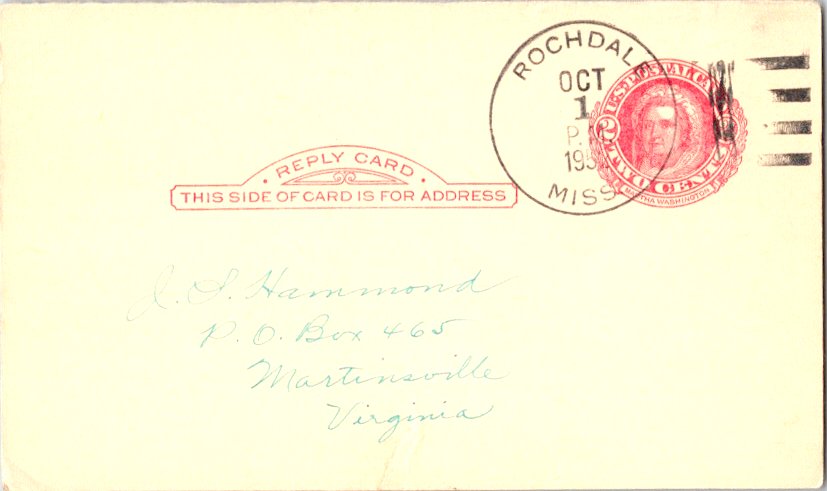 ROCHDALE
OCT
1
P.
195
MISS
U.S. POSTAGE
2 TWO CENTS 2
MARTHA WASHINGTON
· REPLY CARD ·
THIS SIDE OF CARD IS FOR ADDRESS
J. S. Hammond
P. O. Box 465
Martinsville
Virginia